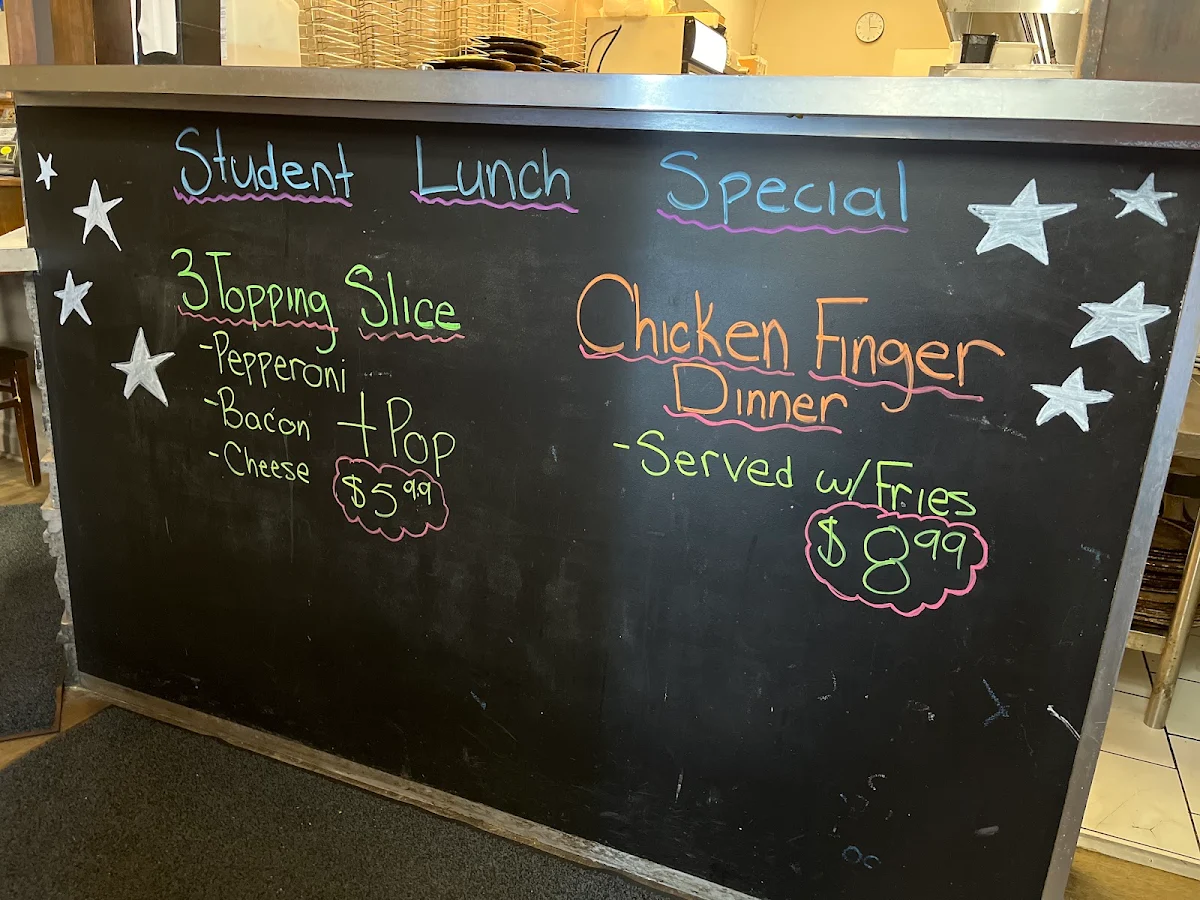 Student Lunch Special
3 Topping Slice
-Pepperoni
-Bacon
-Cheese
+ Pop
$5.99
Chicken Finger
Dinner
-Served w/ Fries
$8.99